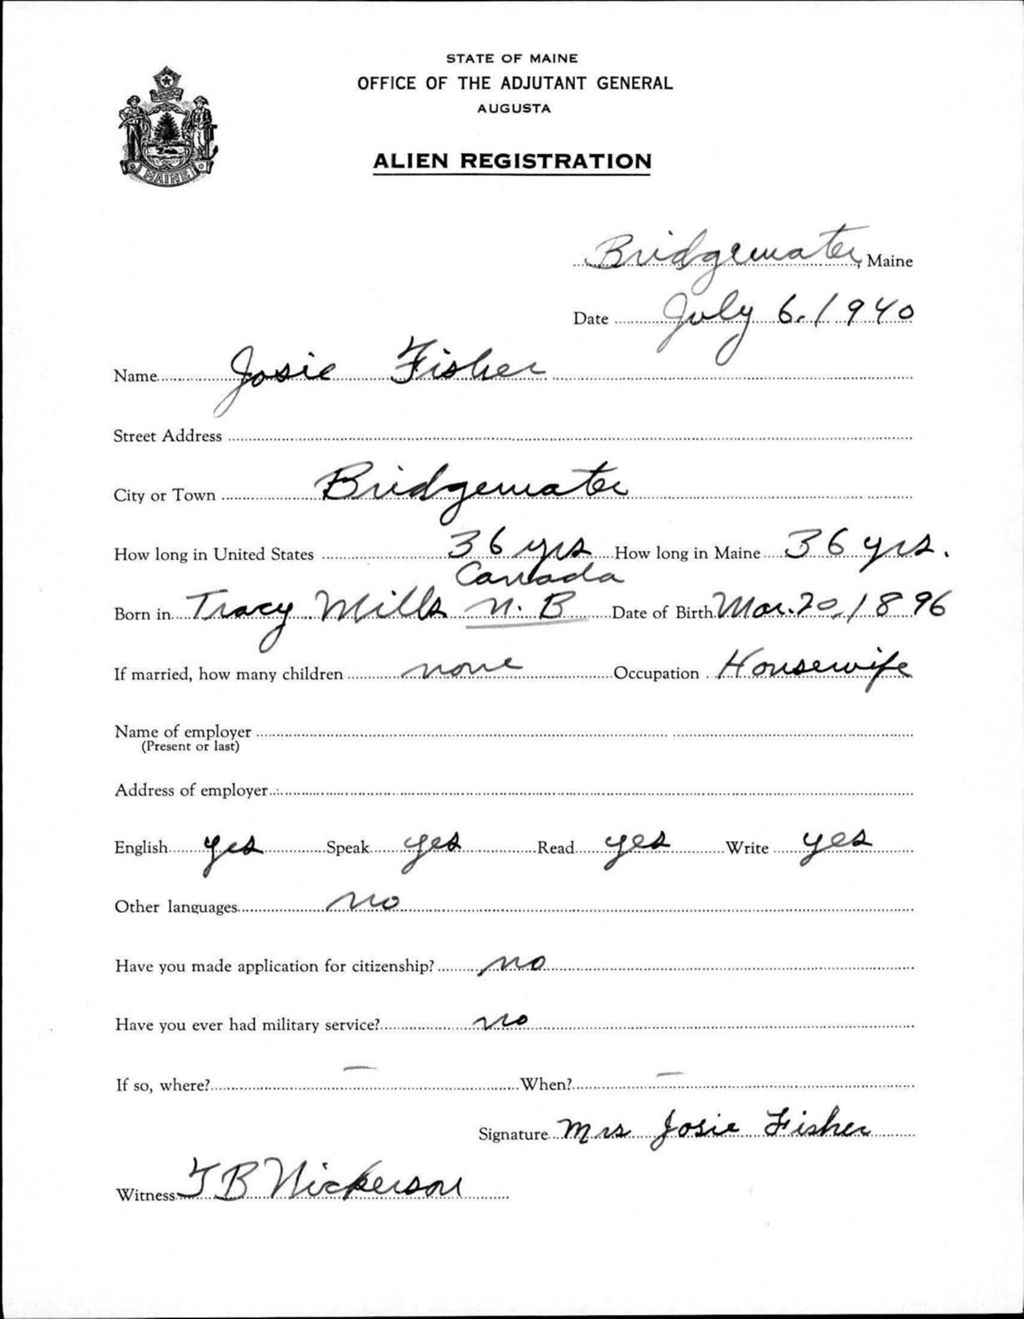 STATE OF MAINE
OFFICE OF THE ADJUTANT GENERAL
AUGUSTA
ALIEN REGISTRATION
MAINE
Bridgewater, Maine
Date July 6. 1940
Name Josie Fisher
Street Address
City or Town Bridgewater
How long in United States 36 yrs How long in Maine 36 yrs.
Canada
Born in Tracy Mills N. B Date of Birth Mar. 20, 1896
If married, how many children none Occupation Housewife
Name of employer
(Present or last)
Address of employer
English yes Speak yes Read yes Write yes
Other languages no
Have you made application for citizenship? no
Have you ever had military service? no
If so, where? — When? —
Signature Mrs Josie Fisher
Witness T B Nickerson